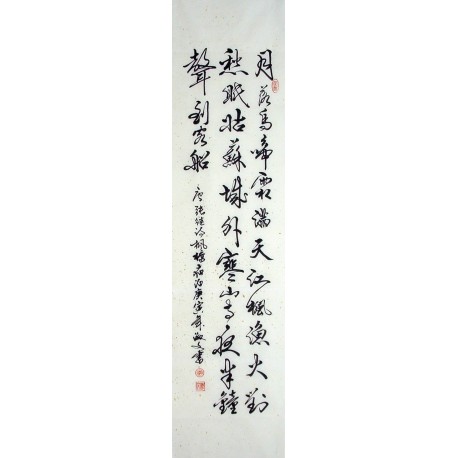 月落烏啼霜滿天江楓漁火對
愁眠姑蘇城外寒山寺夜半鐘
聲到客船
唐張繼詩楓橋夜泊庚寅書